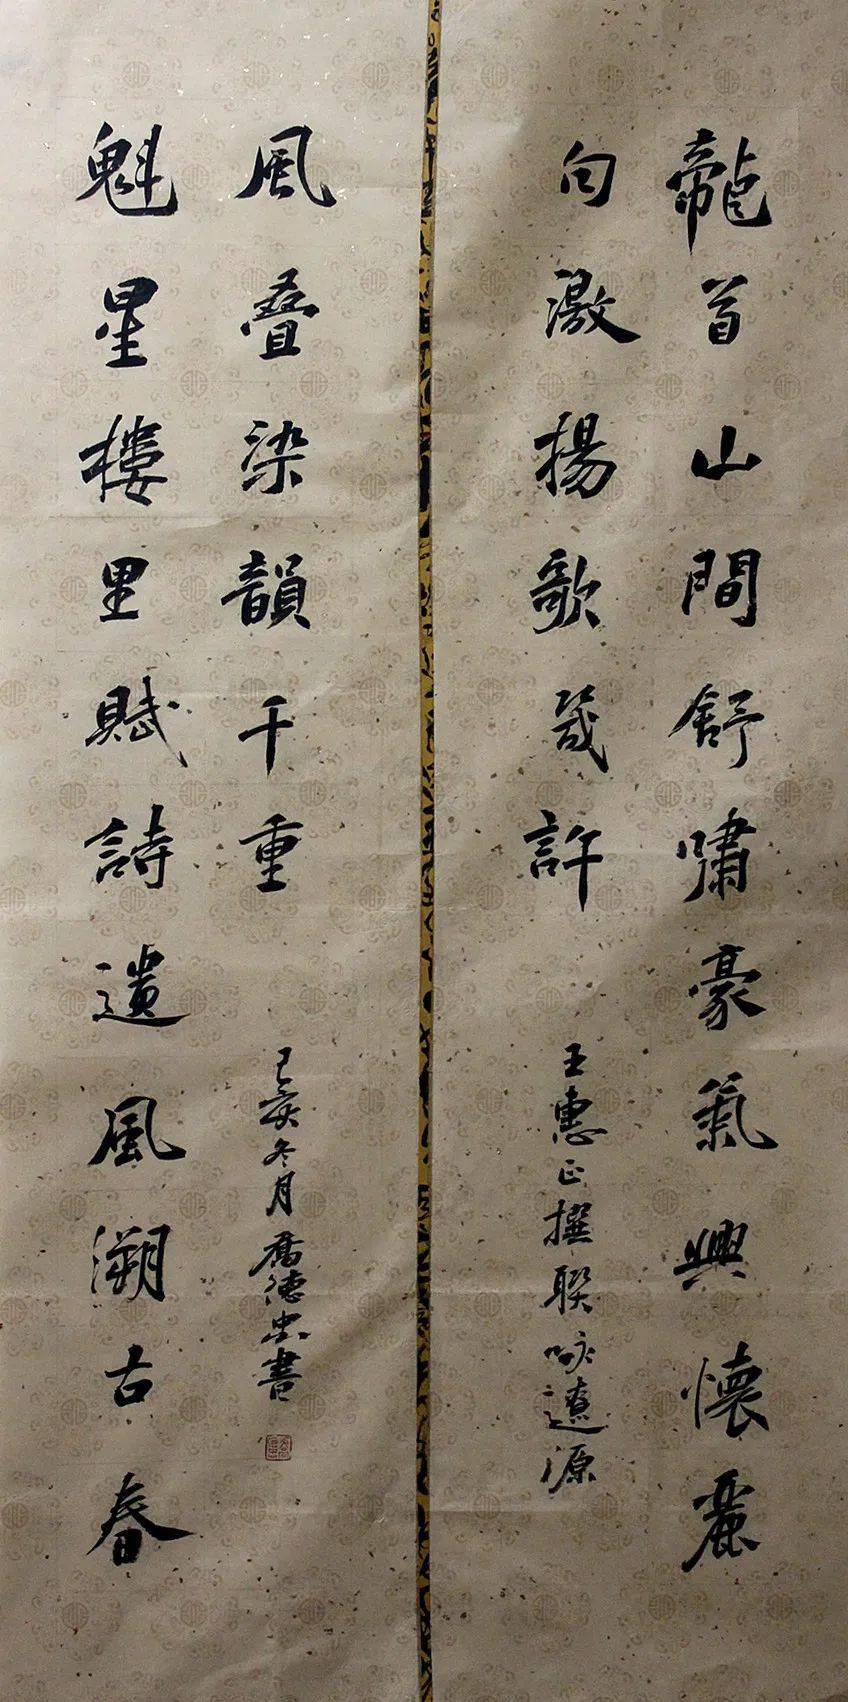 龍首山間舒嘯豪氣興懷麗
句激揚歌幾許
王惠正撰聯咏遼源
魁星樓里賦詩遺風溯古春
風叠染韻千重
己亥冬月德忠書